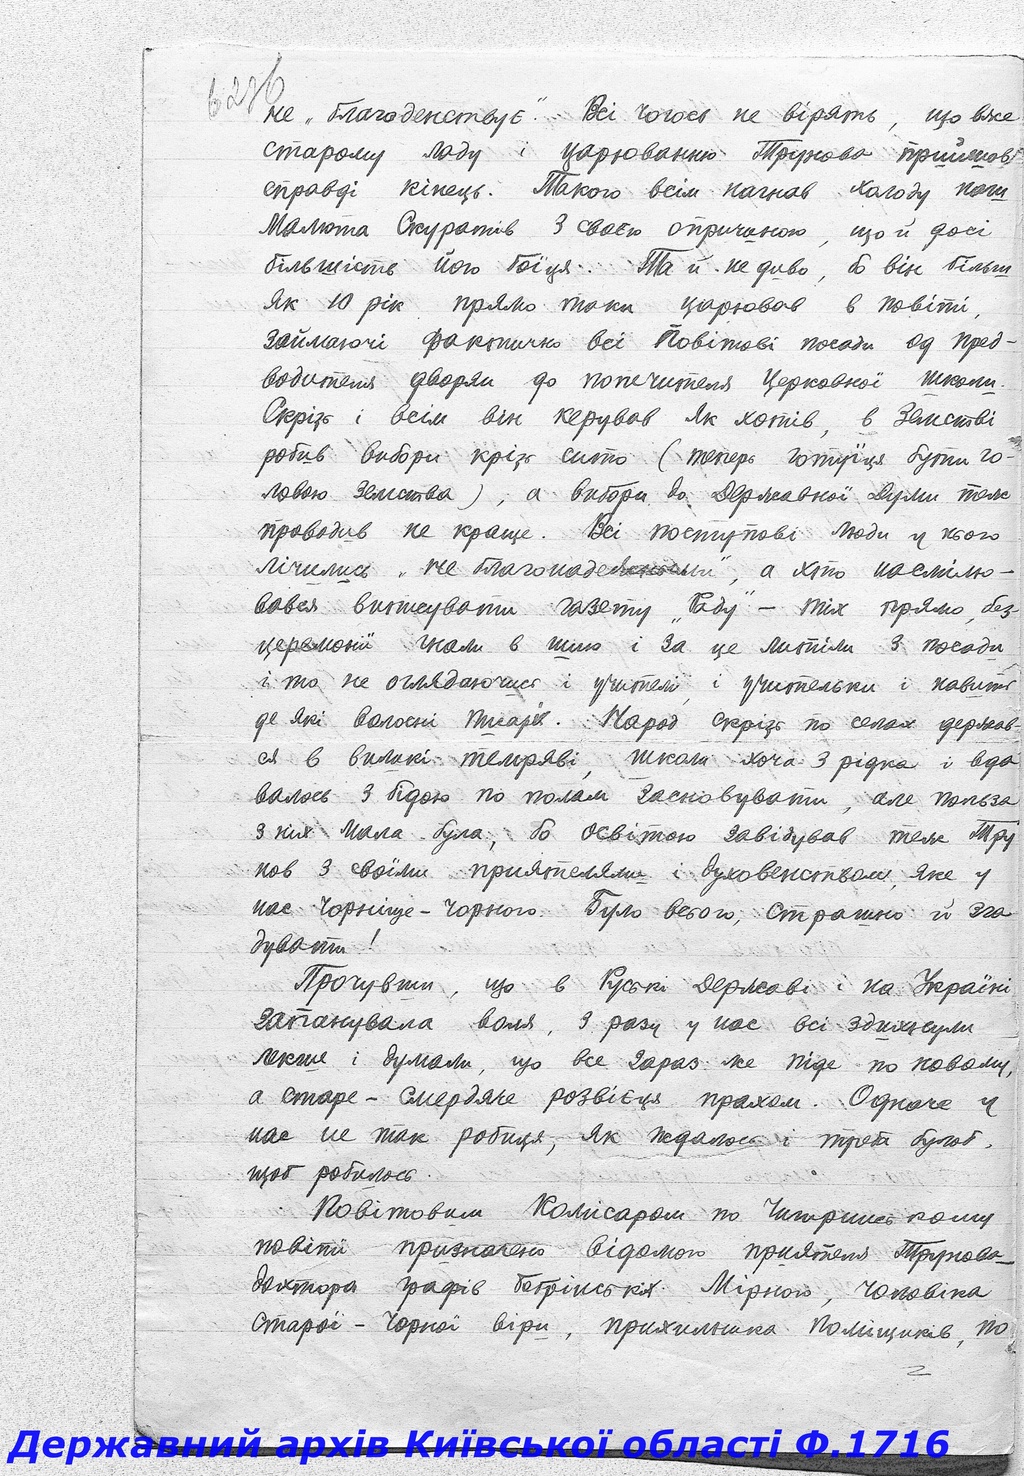 не „благоденствує“. Всі чогось не вірять, що вже
старому ладу і царюванню Трунова прийшов
справді кінець. Такого всім нагнав холоду наш
Малюта Скуратів з своєю опричиною, що й досі
більшість його боїця. Та й не диво, бо він більш
як 10 рік прямо таки царював в повіті,
займаючі фактично всі Повітові посади од пред-
водителя дворян до попечителя Церковної школи.
Скрізь і всім він керував як хотів, в Земстві
робив вибори крізь сито (теперь готуїця бути го-
ловою Земства), а вибори до Державної Думи теж
проводив не краще. Всі поступові люди у нього
лічились „не благонадежными“, а хто насмілю-
вався виписувати газету „Раду“ – тіх прямо без
церемоній гнали в шию і за це литіли з посади
і то не оглядаючись і учителі, і учительки і навить
де які волосні писарі. Народ скрізь по селах держав-
ся в великі темряві, школи хоча з рідка і вда
валось з бідою по полам засновувати, але польза
з них мала була, бо освітою завідував теж Тру
нов з своїми приятелями і духовенством, яке у
нас чорніще-чорного. Було всього, страшно й зга
дувати!
Прочувши, що в Руські Державі і на Україні
запанувала воля, з разу у нас всі здихнули
лекше і думали, що все зараз же піде по новому,
а старе – смердяче розвієця прахом. Одначе у
нас не так робиця, як ждалось і треба булоб,
щоб робилось.
Повітовим Комісаром по Чигиринському
повіті призначено відомого приятеля Трунова –
дохтора графів Бобрінських Мірного, чоловіка
старої – чорної віри, прихильника поміщиків, по
2
Державний архів Київської області Ф.1716